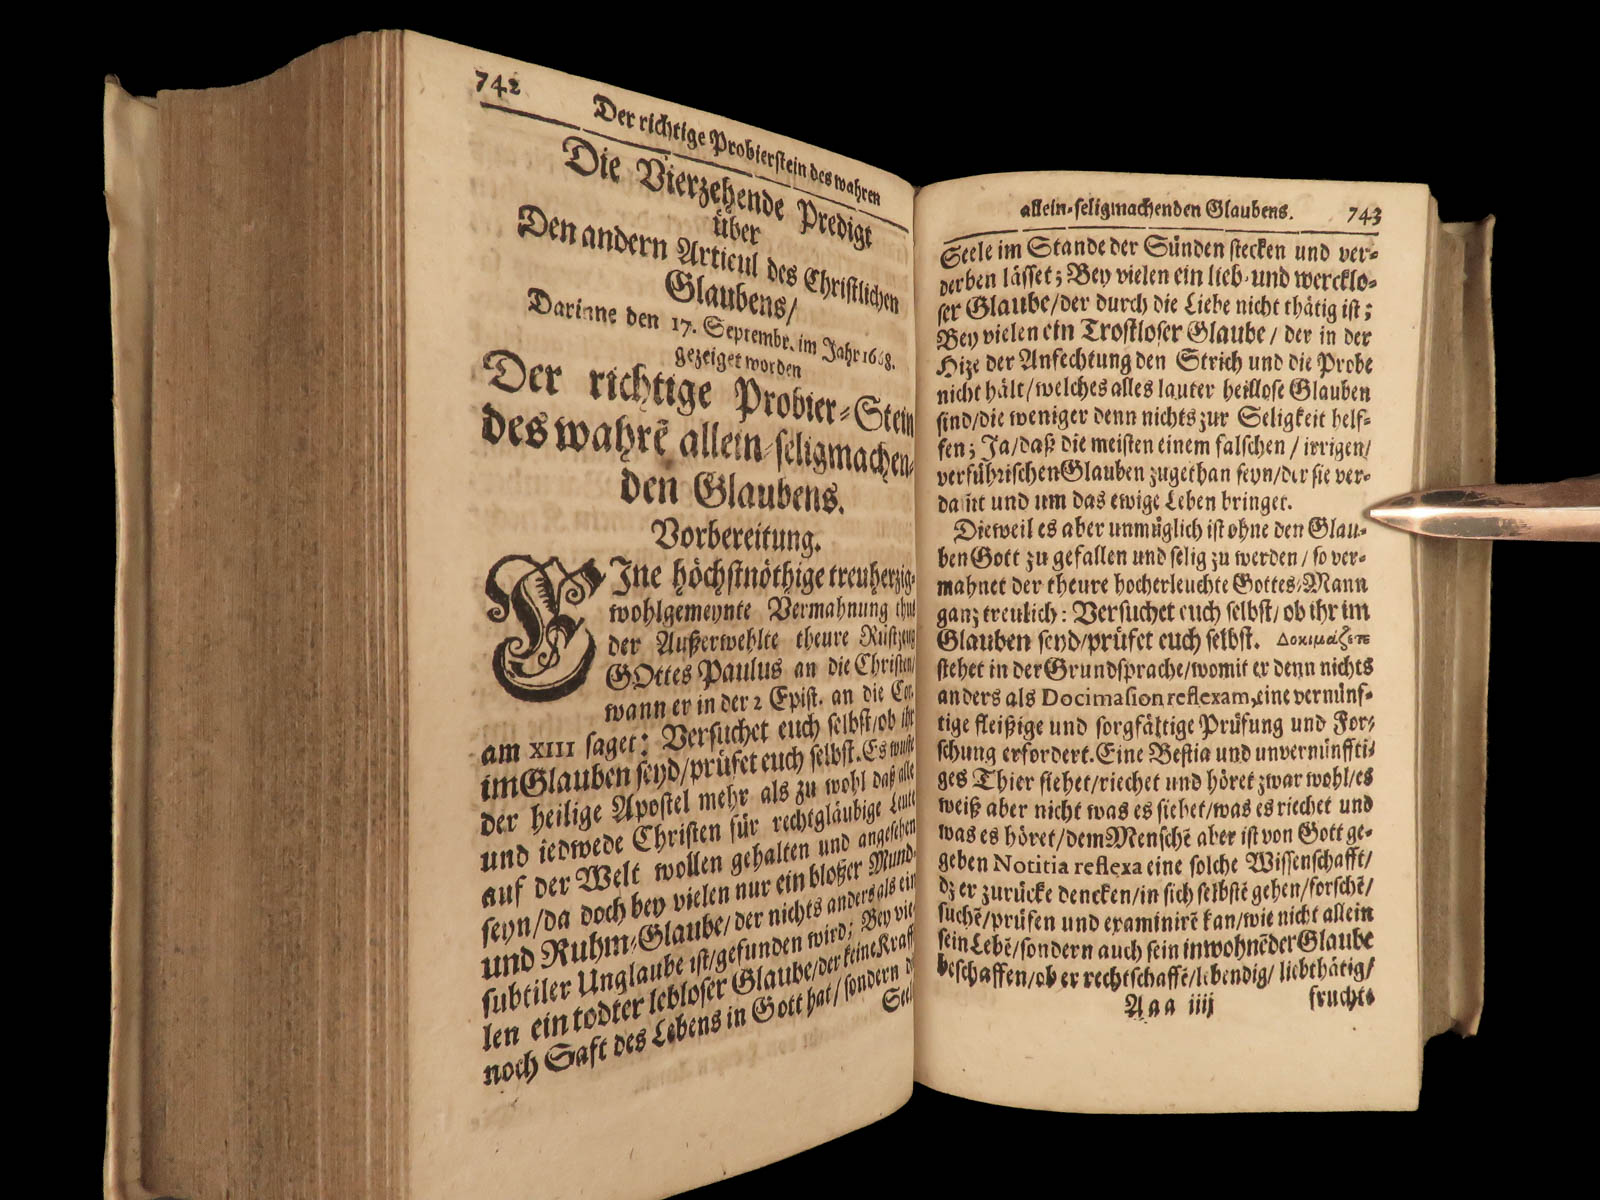 742
Der richtige Probierstein des wahren
Die Vierzehende Predigt
über
Den andern Articul des Christlichen
Glaubens/
Darinne den 17. Septembr. im Jahr 1668.
gezeiget worden
Der richtige Probier-Stein
des wahrē allein-seligmachen-
den Glaubens.
Vorbereitung.
EIne höchstnöthige treuherzig-
wohlgemeynte Vermahnung thut
der Außerwehlte theure Rüstzeug
GOttes Paulus an die Christen/
wann er in der 2 Epist. an die Cor.
am XIII saget: Versuchet euch selbst/ob ihr
im Glauben seyd/prüfet euch selbst. Es wuste
der heilige Apostel mehr als zu wohl daß alle
und iedwede Christen für rechtgläubige Leute
auf der Welt wollen gehalten und angesehen
seyn/da doch bey vielen nur ein bloßer Mund-
und Ruhm-Glaube/der nichts anders als ein
subtiler Unglaube ist/gefunden wird; Bey vie-
len ein todter lebloser Glaube/der keine Kraff
noch Saft des Lebens in Gott hat/sondern
Seel
allein-seligmachenden Glaubens. 743
Seele im Stande der Sünden stecken und ver-
derben lässet; Bey vielen ein lieb- und wercklo-
ser Glaube/der durch die Liebe nicht thätig ist;
Bey vielen ein Trostloser Glaube/ der in der
Hize der Anfechtung den Strich und die Probe
nicht hält/welches alles lauter heillose Glauben
sind/die weniger denn nichts zur Seligkeit helf-
fen; Ja/daß die meisten einem falschen/irrigen/
verführischen Glauben zugethan seyn/der sie ver-
dam̄t und um das ewige Leben bringet.
Dieweil es aber unmüglich ist ohne den Glau-
ben Gott zu gefallen und selig zu werden/ so ver-
mahnet der theure hocherleuchte Gottes-Mann
ganz treulich: Versuchet euch selbst/ ob ihr im
Glauben seyd/prüfet euch selbst. Δοκιμάζετε
stehet in der Grundsprache/womit er denn nichts
anders als Docimasion reflexam, eine vernünf-
tige fleißige und sorgfältige Prüfung und For-
schung erfordert. Eine Bestia und unvernünffti-
ges Thier siehet/riechet und höret zwar wohl/es
weiß aber nicht was es siehet/was es riechet und
was es höret/dem Menschē aber ist von Gott ge-
geben Notitia reflexa eine solche Wissenschafft/
dz er zurücke dencken/in sich selbstē gehen/forschē/
suchē/prüfen und examinirē kan/wie nicht allein
sein Lebē/sondern auch sein inwohnēder Glaube
beschaffen/ob er rechtschaffē/lebendig/ liebthätig/
Aaa iiij frucht-